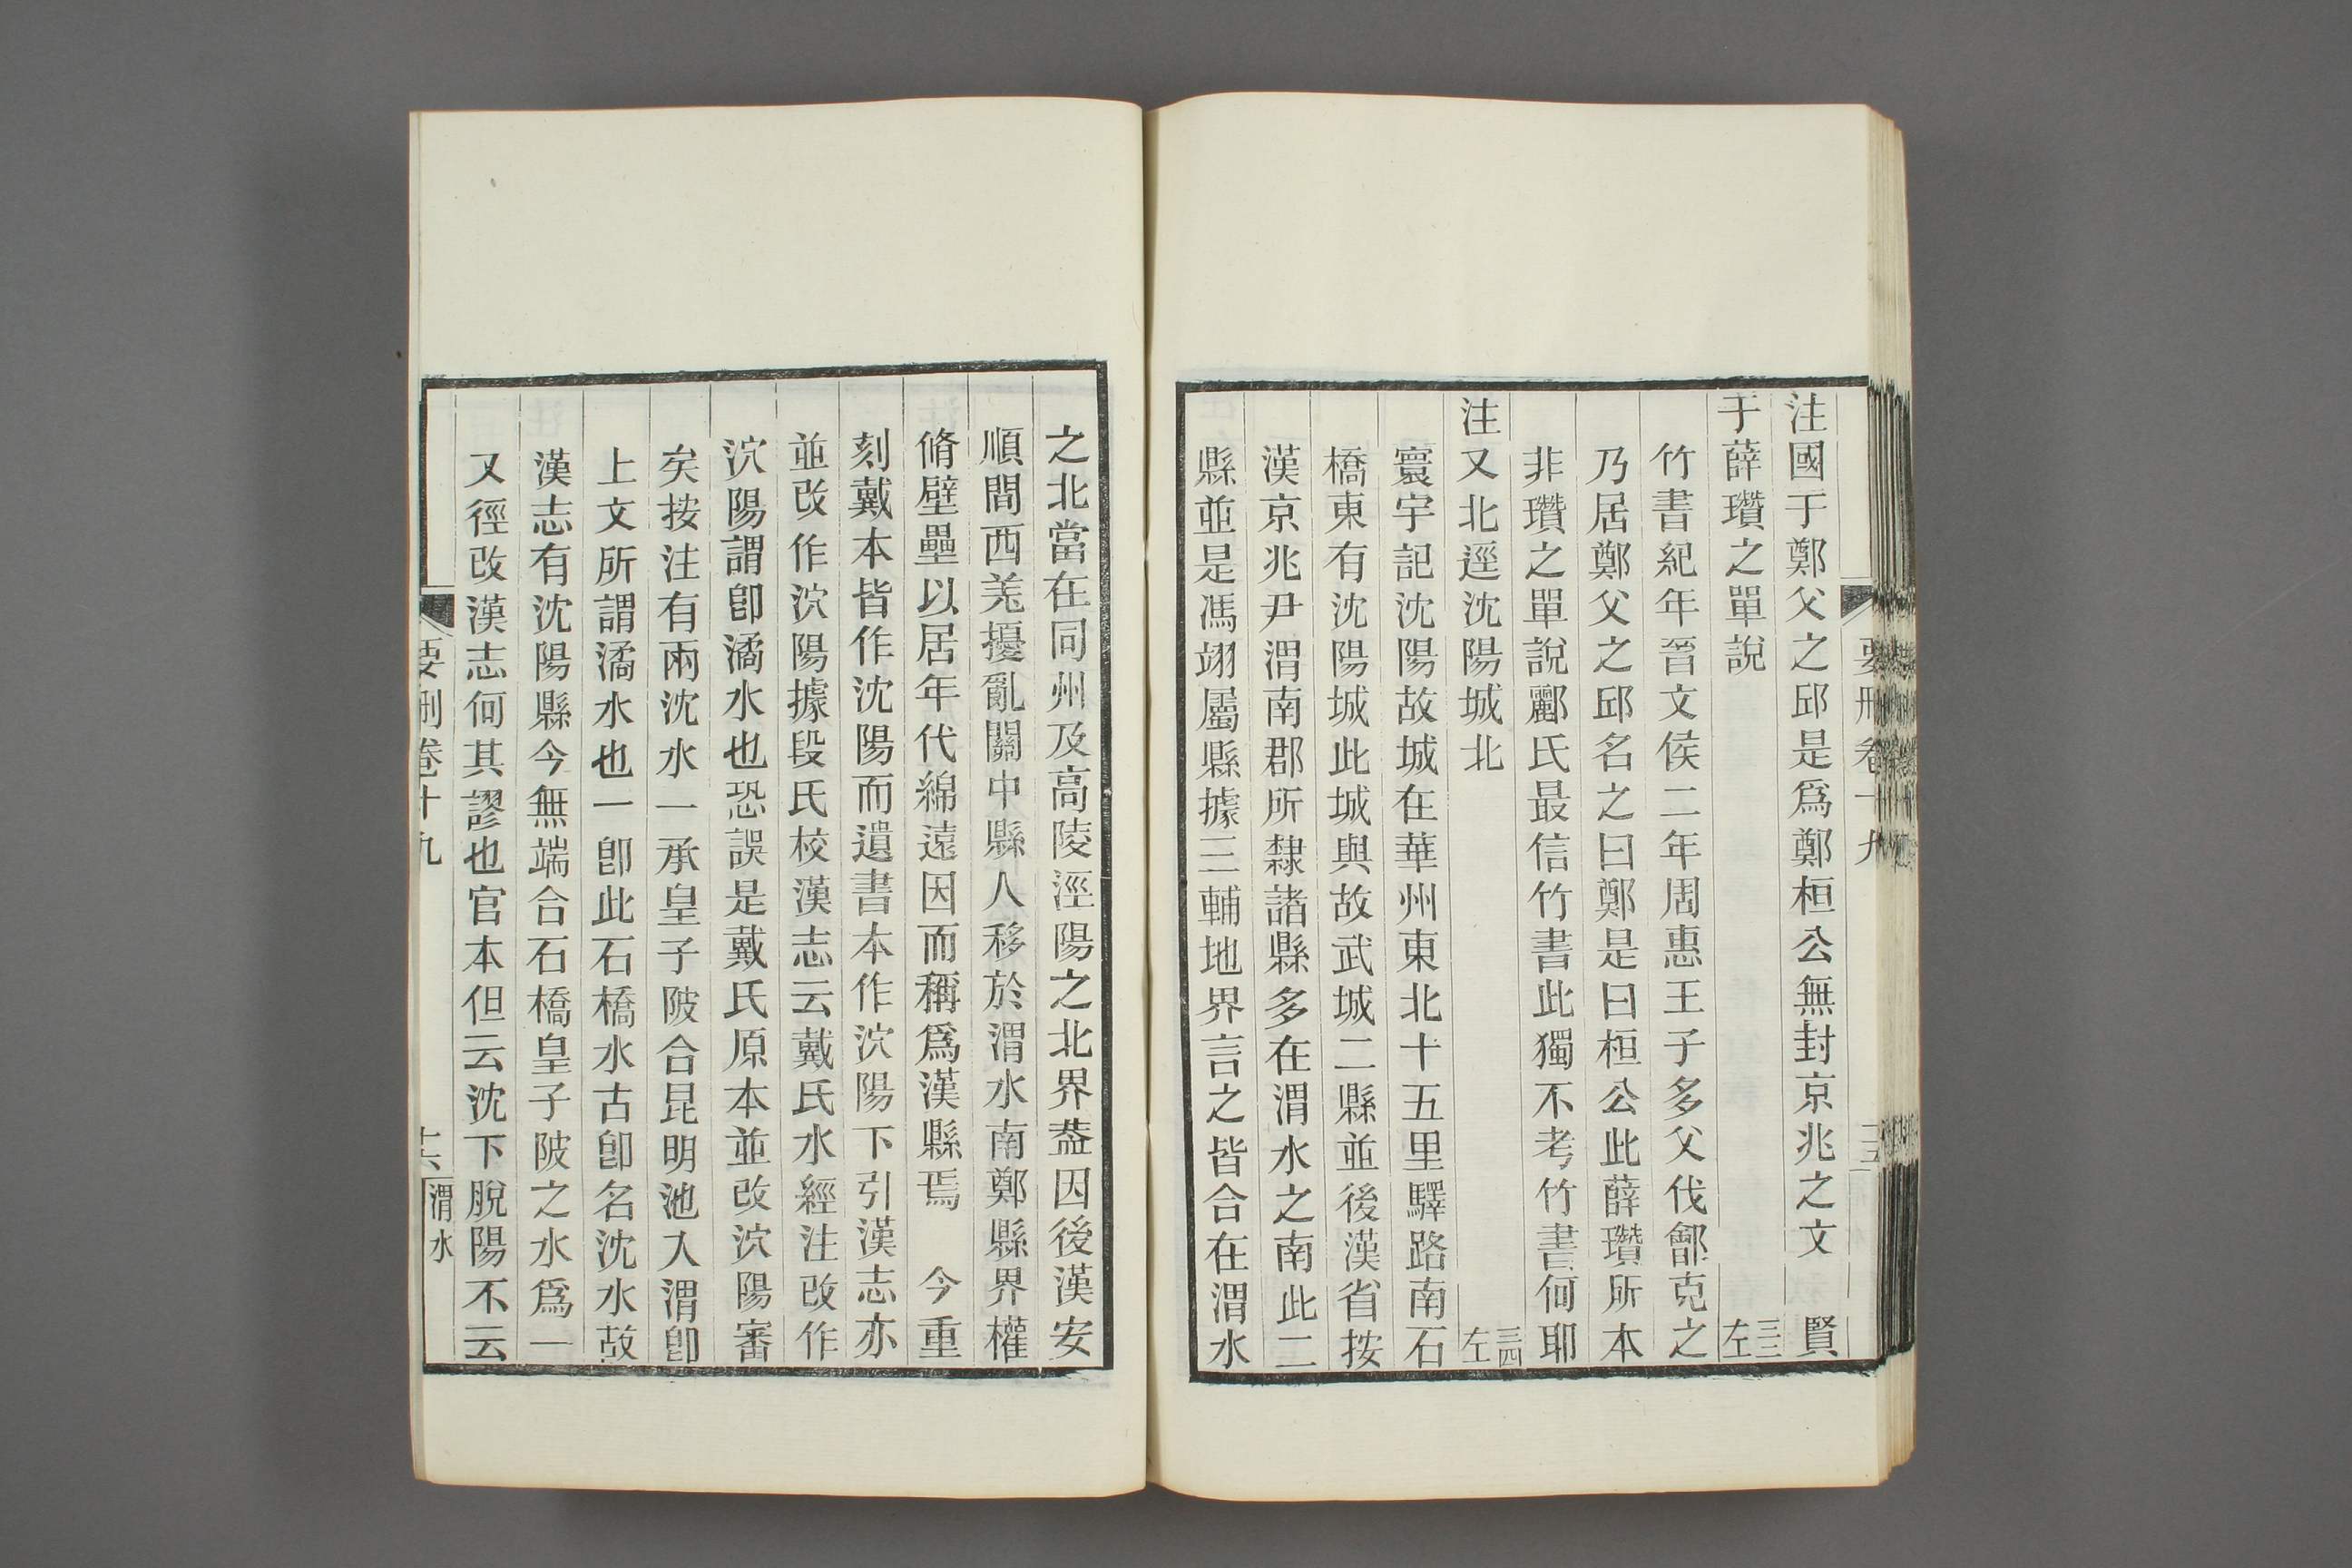 注國于鄭父之邱是爲鄭桓公無封京兆之文　賢
于薛瓚之單說　三三左
竹書紀年晉文侯二年周惠王子多父伐鄶克之
乃居鄭父之邱名之曰鄭是曰桓公此薛瓚所本
非瓚之單說酈氏最信竹書此獨不考竹書何耶
注又北逕沈陽城北　三四左
寰宇記沈陽故城在華州東北十五里驛路南石
橋東有沈陽城此城與故武城二縣並後漢省按
漢京兆尹渭南郡所隸諸縣多在渭水之南此二
縣並是馮翊屬縣據三輔地界言之皆合在渭水
之北當在同州及高陵涇陽之北界葢因後漢安
順間西羌擾亂關中縣人移於渭水南鄭縣界權
脩壁壘以居年代綿遠因而稱爲漢縣焉　今重
刻戴本皆作沈陽而遺書本作沇陽下引漢志亦
並改作沇陽據段氏校漢志云戴氏水經注改作
沇陽謂卽潏水也恐誤是戴氏原本並改沇陽審
矣按注有兩沈水一承皇子陂合昆明池入渭卽
上文所謂潏水也一卽此石橋水古卽名沈水故
漢志有沈陽縣今無端合石橋皇子陂之水爲一
又徑改漢志何其謬也官本但云沈下脫陽不云
要刪卷十九
十六
渭水